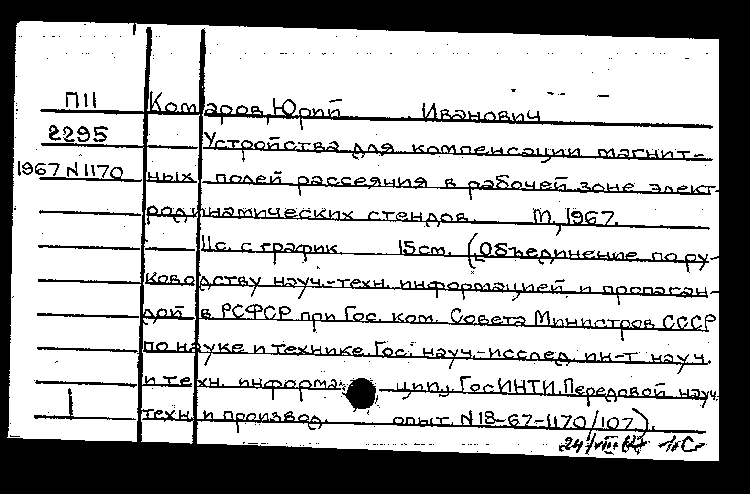 П11 Комаров, Юрий Иванович
2295 Устройства для компенсации магнит-
1967 N 1170 ных полей рассеяния в рабочей зоне элект-
родинамических стендов. М, 1967.
11с. с график. 15см. (Объединение по ру-
ководству науч.-техн. информацией и пропаган-
дой в РСФСР при Гос. ком. Совета Министров СССР
по науке и технике. Гос. науч.-исслед. ин-т науч.
и техн. информации, ГосИНТИ. Передовой науч.
1 техн. и производ. опыт. N 18-67-1170/107).